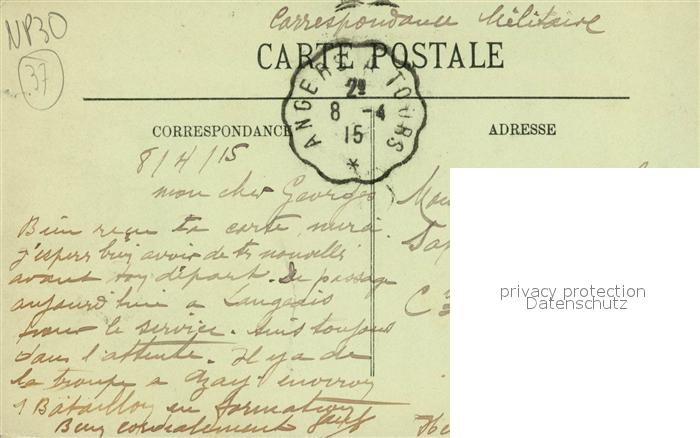 Correspondance Militaire
NP30
37
CARTE POSTALE
ANGERS A TOURS
2º
8 -4
15
*
CORRESPONDANCE
ADRESSE
8/4/15
mon cher Georges
Bien reçu ta carte, merci.
J'espère bien avoir de tes nouvelles
avant ton départ. De passage
aujourd'hui a Langeais
pour le service. Suis toujours
dans l'attente. Il y a de
la troupe a Azay environ
1 Bataillon en formation
Bien cordialement
privacy protection
Datenschutz